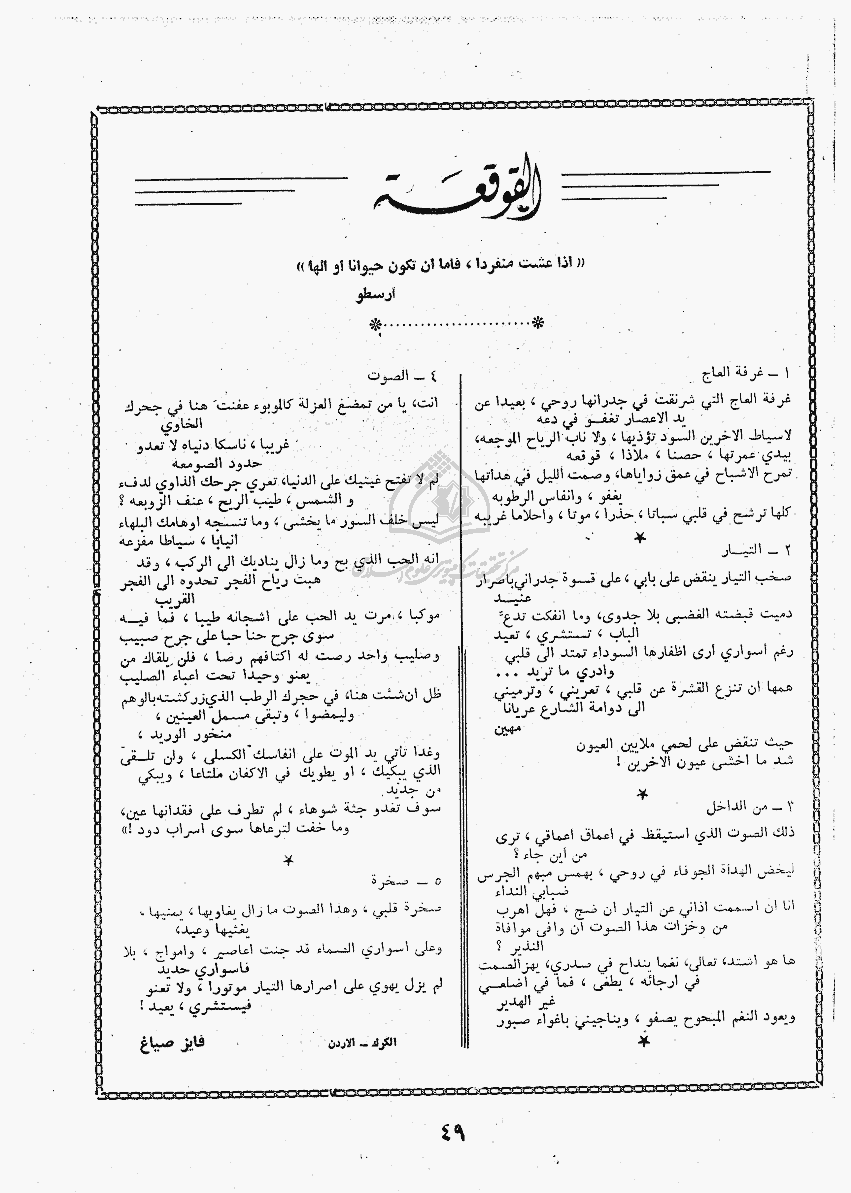 القوقعة
« اذا عشت منفردا ، فاما ان تكون حيوانا او الها »
أرسطو
١ ــ غرفة العاج
غرفة العاج التي شرنقت في جدرانها روحي ، بعيدا عن
يد الاعصار تغفــو في دعه
لاسياط الاخرين السود تؤذيها ، ولا ناب الرياح الموجعه،
بيدي عمرتها ، حصنا ، ملاذا ، قوقعه
تمرح الاشباح في عمق زواياها، وصمت الليل في هدأتها
يغفو ، وانفاس الرطوبه
كلها ترشح في قلبي سباتا ، حذرا ، موتا ، واحلاما غريبه
٢ ــ التيــار
صخب التيار ينقض على بابي ، على قسوة جدراني باصرار
عنيــد
دميت قبضته الغضبى بلا جدوى، وما انفكت تدع
الباب ، تستشري ، تعيد
رغم أسواري أرى اظفارها السوداء تمتد الى قلبي
وادري ما تريد ...
همها ان تنزع القشرة عن قلبي ، تعريني ، وترميني
الى دوامة الشارع عريانا
مهين
حيث تنقض على لحمي ملايين العيون
شد ما اخشى عيون الاخرين !
٣ ــ من الداخل
ذلك الصوت الذي استيقظ في اعماق اعماقي ، ترى
من أين جاء ؟
ليخض الهدأة الجوفاء في روحي ، بهمس مبهم الجرس
ضبابي النداء
انا ان اصممت اذاني عن التيار ان ضج ، فهل اهرب
من وخزات هذا الصوت ان وافى موافاة
النذير ؟
ها هو اشتد، تعالى، نغما ينداح في صدري، يهز الصمت
في ارجائه ، يطغى ، فما في اضلعــي
غير الهدير
ويعود النغم المبحوح يصفو ، ويناجيني باغواء صبور
٤ ــ الصوت
انت، يا من تمضغ العزلة كالموبوء عفنت هنا في جحرك
الخاوي
غريبا ، ناسكا دنياه لا تعدو
حدود الصومعه
لم لا تفتح عينيك على الدنيا، تعري جرحك الذاوي لدفء
و الشمس ، طيب الريح ، عنف الزوبعه ؟
ليس خلف السور ما يخشى ، وما تنسجه اوهامك البلهاء
انيابا ، سياطا مفزعه
انه الحب الذي بح وما زال يناديك الى الركب ، وقد
هبت رياح الفجر تحدوه الى الفجر
القريب
موكبا ، مرت يد الحب على اشجانه طيبا ، فما فيــه
سوى جرح حنا حبا على جرح صبيب
وصليب واحد رصت له اكتافهم رصا ، فلن يلقاك من
يعنو وحيدا تحت اعباء الصليب
ظل ان شئت هنا، في حجرك الرطب الذي زركشته بالوهم
وليمضوا ، وتبقى مسمل العينين ،
منخور الوريد ،
وغدا تأتي يد الموت على انفاسك الكسلى ، ولن تلــقى
الذي يبكيك ، او يطويك في الاكفان ملتاعا ، ويبكي
من جديد
سوف تغدو جثة شوهاء ، لم تطرف على فقدانها عين،
وما خفت لترعاها سوى اسراب دود !»
٥ ــ صخرة
صخرة قلبي ، وهذا الصوت ما زال يغاويها ، يمنيها ،
يغنيها وعيد،
وعلى اسواري الصماء قد جنت اعاصير ، وامواج ، بلا
فاسواري حديد
لم يزل يهوي على اصرارها التيار موتورا ، ولا تعنو
فيستشري ، يعيد !
الكرك ــ الاردن
فايز صياغ
٤٩